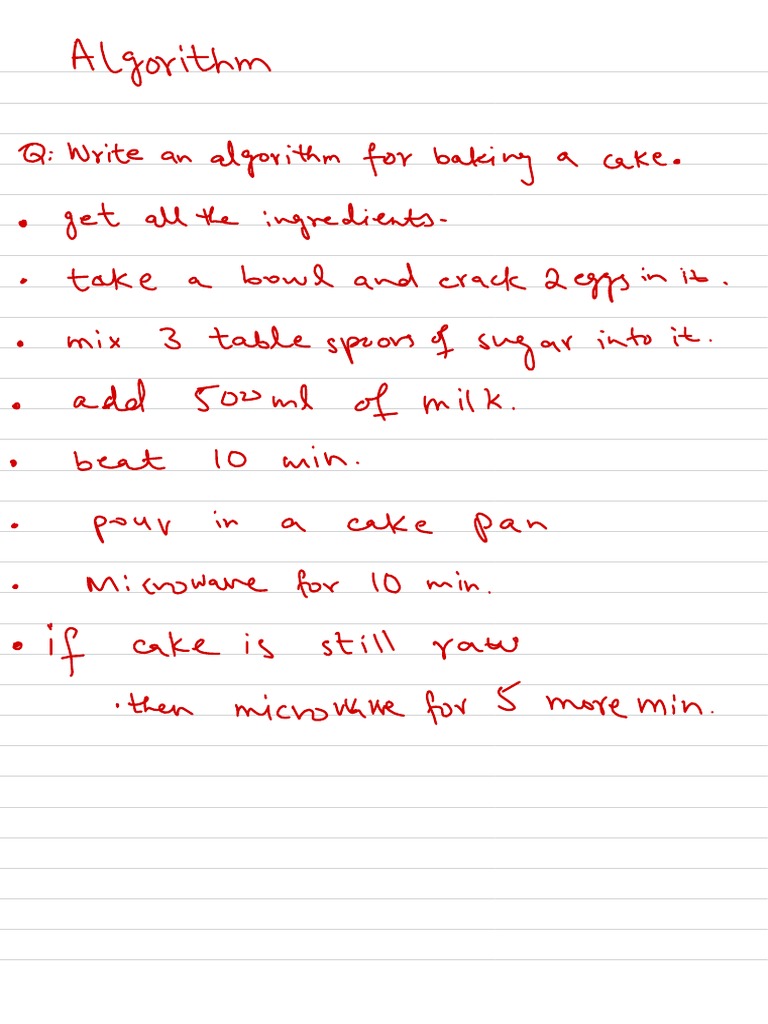 Algorithm
Q: Write an algorithm for baking a cake.
• get all the ingredients.
• take a bowl and crack 2 eggs in it.
• mix 3 table spoons of sugar into it.
• add 500 ml of milk.
• beat 10 min.
• pour in a cake pan
• Microwave for 10 min.
• if cake is still raw
• then microwave for 5 more min.